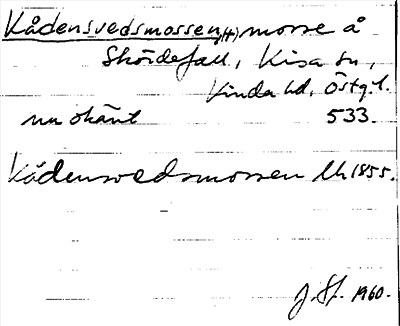 Kådensvedsmossen, (†) mosse å
Skördefall, Kisa sn,
Kinda hd, Östg.l.
nu okänt 533.
Kådensvedsmossen Lh 1855.
J.St. 1960.